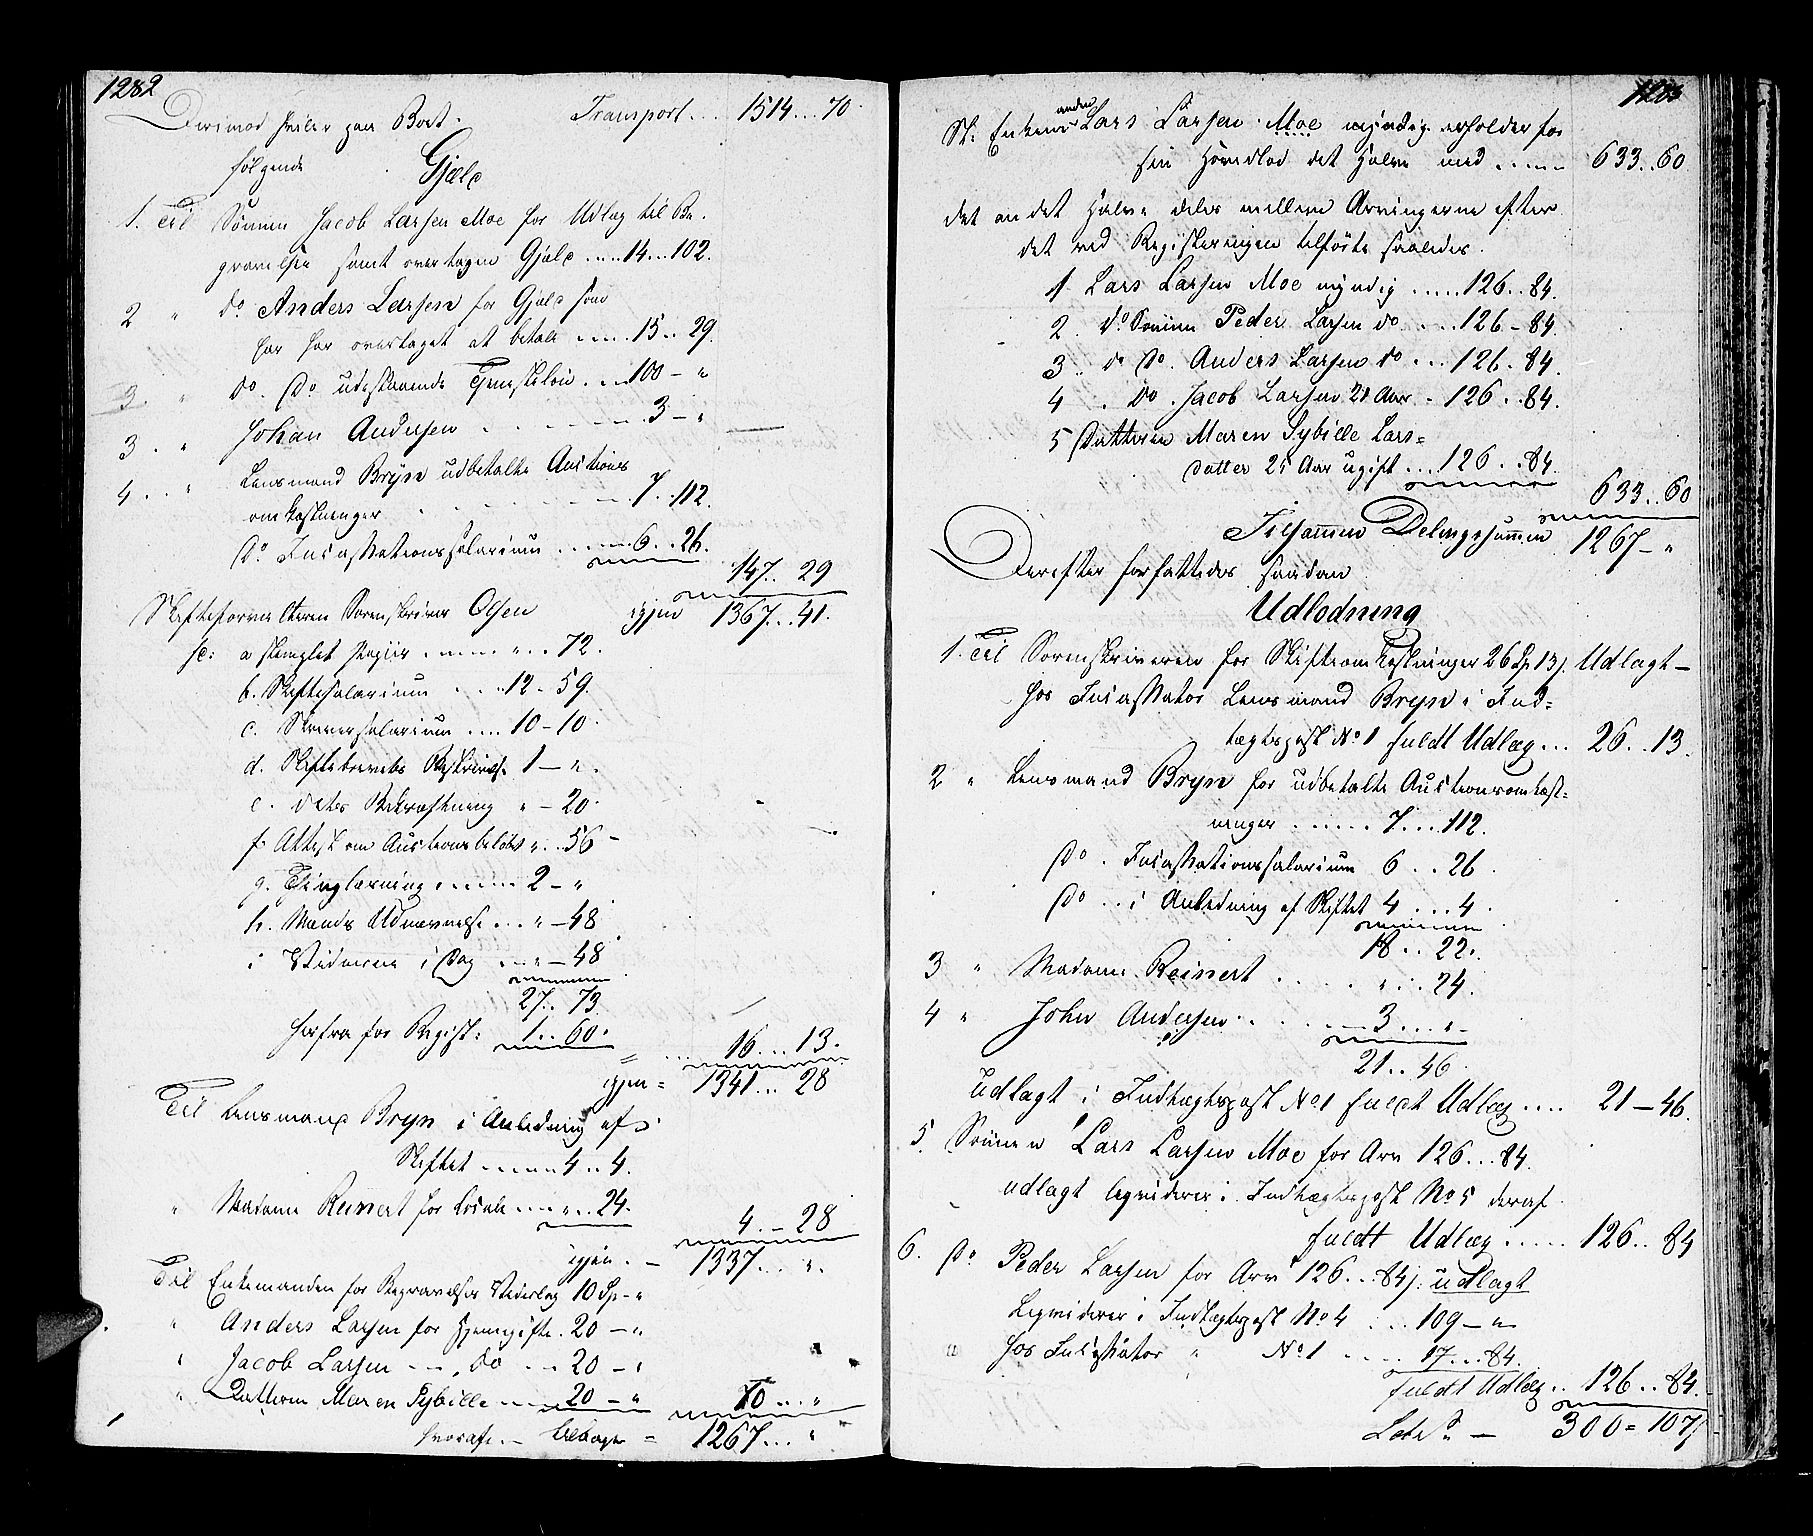 1282
Derimod hviler paa Boet. Transport... 1514...70.
følgende Gjæld
1. Til Sønnen Jacob Larsen Moe for Udlæg til Be-
gravelsen samt overtagen Gjæld ....14...102.
2 " do Anders Larsen for Gjæld som
har overtaget at betale .... 15..29.
3. " do. do. udestaaende Tjenesteløn ... 100 - "
3. " Johan Andersen . . . . 3 - "
4.. " Lensmand Bryn udbetalte Auctions
omkostninger . . . . 7..112.
Do. Incassationssalarium .... 6..26.
147..29
Skifteforvalteren Sorenskriver Olsen igjen 1367...41.
sc: a stemplet Papiir .... " .. 72.
b. Skiftesalarium ....12 - 59.
c. Skriversalarium .... 10 - 10.
d. Skiftebrevets Beskrivelse 1 - ".
e. dets Bekræftning " - 20.
f. Attest om Auctionsbeløbet " .. 56 -
g. Thinglæsning ..... 2 - "
h. Mænds Udnævnelse ... " - 48
i Vidnerne i Dag ... " - 48
27..73
herfra for Regist: 1..60.
" ... 16...13.
igjen = 1341...28
Til Lensmand Bryn i Anledning af
Skiftet ..... 4..4.
" Madame Reinert for Locale .... " .. 24.
4. - 28
igjen. - 1337... ".
Til Enkemanden for Begravelses Vederlag 10 Sp - "
" Anders Larsen for Hjemgifte. 20 - "
" Jacob Larsen - - . do ... 20 - "
" Datteren Maren Sybille .... 20 - " 70 ... "
hvoraf. - Beboet = 1267... "
1283
St: Enkemanden Lars Larsen Moe myndig erholder for
sin Hovedlod det Halve med ..... 633..60
det andet Halve deles mellem Arvingerne efter
det ved Registeringen tilførte saaledes.
1 Lars Larsen Moe myndig ..... 126..84.
2. do Sønnen Peder Larsen do ... 126 - 84.
3 . do Do. Anders Larsen do ... 126. 84.
4 . Do . Jacob Larsen 21 Aar. - 126..84.
5 Datteren Maren Sybille Lars=
datter 25 Aar ugift ... 126..84.
633..60
Tilsammen Delingssummen 1267 - "
Derefter forfattedes saadan
Udlodning
1. Til Sorenskriveren for Skifteomkostninger 26 Sp 13 s. Udlagt -
hos Incassator Lensmand Bryn i Ind=
tægtspost No 1 fuldt Udlæg... 26..13.
2 " Lensmand Bryn for udbetalte Auctionsomkost=
ninger ...... 7...112.
Do. Incassationssalarium 6...26
Do ... i Anledning af Skiftet 4...4.
18...22.
3 " Madame Reinert . . . . " ...24.
4 " John Andersen . . . . 3 ... " -
21..46.
Udlagt i Indtægtspost No 1 fuldt Udlæg .... 21 - 46.
5. Sønnen Lars Larsen Moe for Arv 126...84.
udlagt liqviderer i Indtægtspost No 5 deraf.
fuldt Udlæg ..... 126..84
6. Do Peder Larsen for Arv 126...84 s. udlagt
Liqviderer i Indtægtspost No 4 ... 109 - "
" hos Incassator " No 1 ..... 17...84.
fuldt Udlæg .. 126..84.
Late. - 300 = 107 s